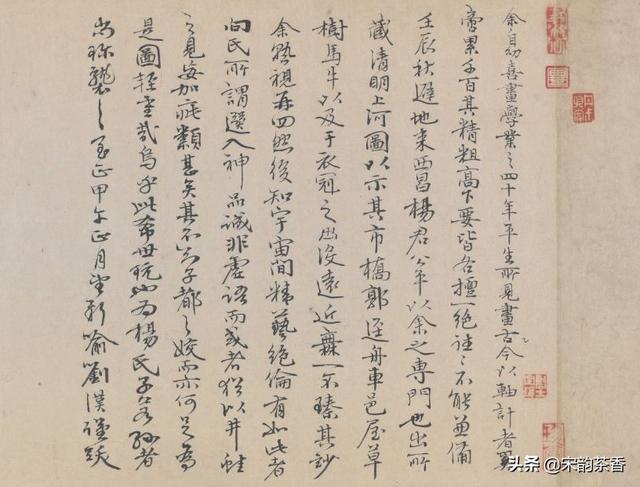 余自幼喜畫學業之四十年平生所見畫古今以軸計者奚
啻累千百其精粗高下要皆各擅一絕往〻不能兼備
壬辰秋避地来西昌楊君公平以余之專門也出所
藏清明上河圖以示其市橋郭逕舟車邑屋草
樹馬牛以及于衣冠之出没遠近靡一不臻其妙
余熟視再四然後知宇宙間精藝絕倫有如此者
向氏所謂選入神品誠非虛語而或者猶以井蛙
之見妄加疵纇甚矣其不知子都之姣而亦何足為
是圖輕重哉烏乎此希世玩也為楊氏子若孫者
尚珍襲之至正甲午正月望新喻劉漢謹跋
头条 @宋韵茶香